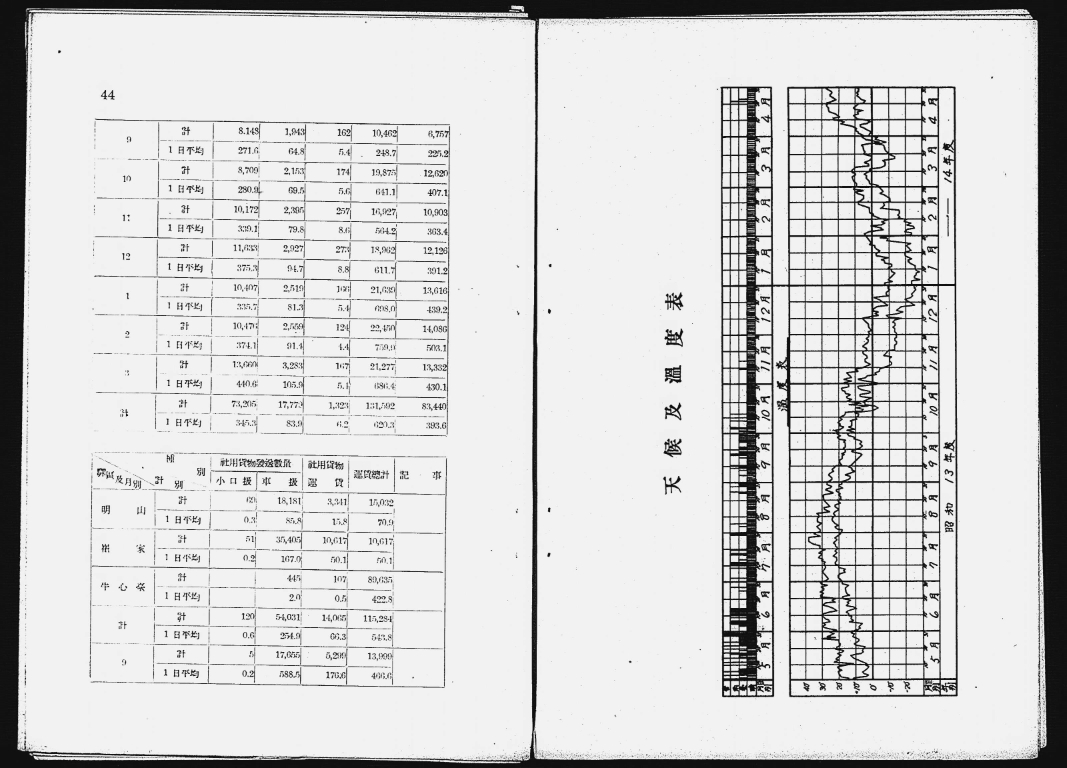 44
9 計 8,148 1,943 162 10,462 6,757
1日平均 271.6 64.8 5.4 248.7 225.2
10 計 8,709 2,153 174 19,875 12,620
1日平均 280.9 69.5 5.6 641.1 407.1
11 計 10,172 2,395 257 16,927 10,903
1日平均 339.1 79.8 8.6 564.2 363.4
12 計 11,633 2,927 273 18,962 12,126
1日平均 375.3 94.7 8.8 611.7 391.2
1 計 10,407 2,519 166 21,639 13,616
1日平均 335.7 81.3 5.4 698.0 439.2
2 計 10,476 2,559 124 22,450 14,086
1日平均 374.1 91.4 4.4 759.9 503.1
3 計 13,660 3,283 167 21,277 13,332
1日平均 440.6 105.9 5.4 686.4 430.1
計 計 73,205 17,779 1,323 131,592 83,440
1日平均 345.3 83.9 6.2 620.3 393.6
種別 社用貨物發送數量 社用貨物 運賃總計 記事
驛區及月別 計別 小口扱 車扱 運賃
明山 計 69 18,181 3,341 15,032
1日平均 0.3 85.8 15.8 70.9
崔家 計 51 35,405 10,617 10,617
1日平均 0.2 167.0 50.1 50.1
牛心臺 計 445 107 89,635
1日平均 2.0 0.5 422.8
計 計 120 54,031 14,065 115,284
1日平均 0.6 254.9 66.3 543.8
9 計 5 17,655 5,299 13,999
1日平均 0.2 588.5 176.6 466.6
天候及溫度表
溫度表
40 30 20 10 0 -10 -20
5月 6月 7月 8月 9月 10月 11月 12月 1月 2月 3月 4月
5月 6月 7月 8月 9月 10月 11月 12月 1月 2月 3月 4月
昭和13年度
14年度